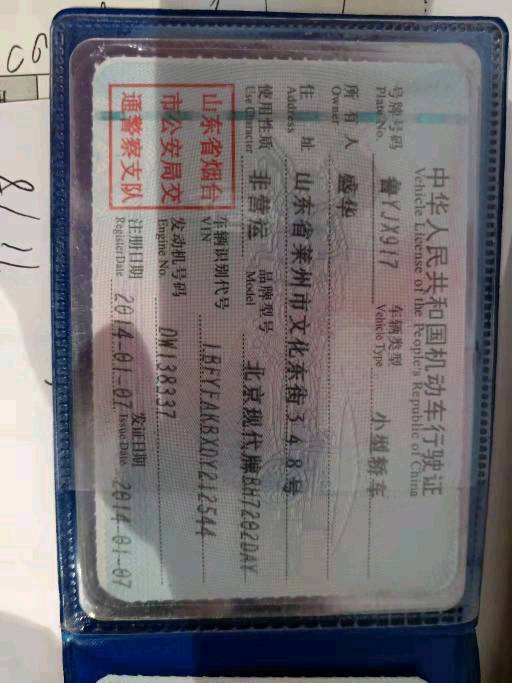 中华人民共和国机动车行驶证
Vehicle License of the People's Republic of China
号牌号码 鲁YJX917 车辆类型 小型轿车
Plate No. Vehicle Type
所有人 盛华
Owner
住址 山东省莱州市文化东街348号
Address
使用性质 非营运 品牌型号 北京现代牌BH7202DAY
Use Character Model
山东省烟台
市公安局交
通警察支队
车辆识别代号 LBFYFAKBXDY212544
VIN
发动机号码 DW138337
Engine No.
注册日期 2014-01-07 发证日期 2014-01-07
Register Date Issue Date